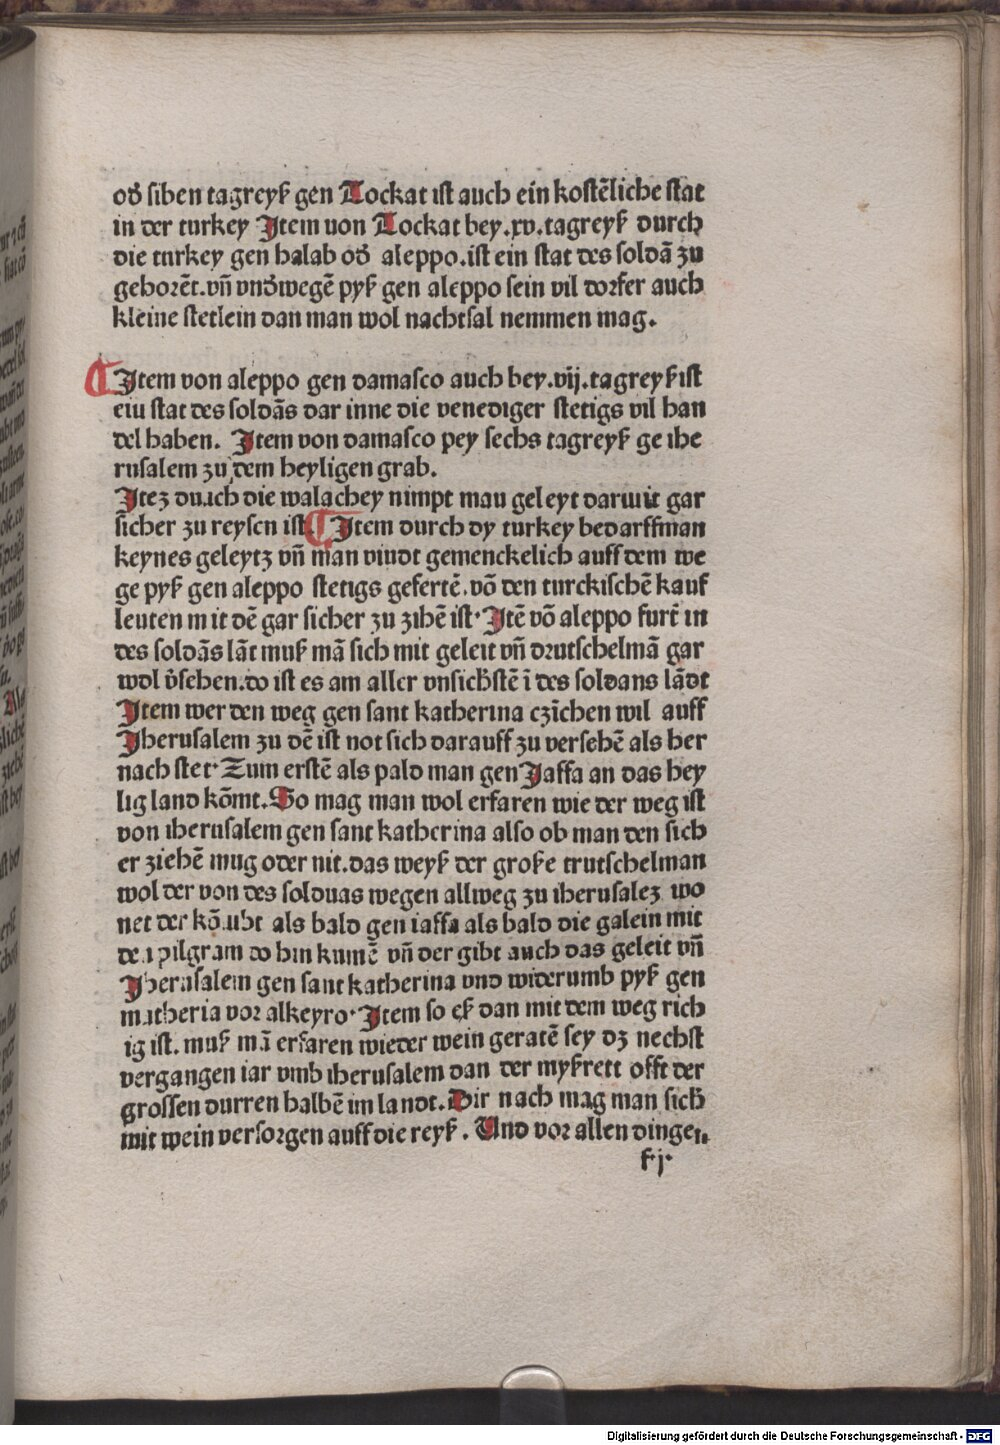 od̕ siben tagreyß gen Tockat ist auch ein kostēliche stat
in der turkey Item uon Tockat bey.xv.tagreyß durch
die turkey gen halab od̕ aleppo.ist ein stat des soldā zu
gehorēt.vn̄ vnd̕wegē pyß gen aleppo sein vil dorfer auch
kleine stetlein dan man wol nachtsal nemmen mag.
Item von aleppo gen damasco auch bey.vij.tagreyß ist
eiu stat des soldās dar inne die venediger stetigs vil han
del haben. Item von damasco pey sechs tagreyß ge ihe
rusalem zu dem heyligen grab.
Itez durch die walachey nimpt mau geleyt darmit gar
sicher zu reysen ist. Item durch dy turkey bedarffman
keynes geleytz vn̄ man vindt gemenckelich auff dem we
ge pyß gen aleppo stetigs gefertē.vō den turckischē kauf
leuten mit dē gar sicher zu zihē ist. Itē vō aleppo furt in
des soldās lāt muß mā sich mit geleit vn̄ drutschelmā gar
wol v̕sehen.do ist es am aller vnsich̕stē ī des soldans lādt
Item wer den weg gen sant katherina czīchen wil auff
Jherusalem zu dē ist not sich darauff zu versehē als her
nach stet. Zum erstē als pald man gen Jaffa an das hey
lig land kōmt. So mag man wol erfaren wie der weg ist
von iherusalem gen sant katherina also ob man den sich
er ziehē mug oder nit.das weyß der große trutschelman
wol der von des solduas wegen allweg zu iherusalez wo
net der kō.ubt als bald gen iaffa als bald die galein mit
den pilgram do hin kumē vn̄ der gibt auch das geleit vn̄
Jherusalem gen sant katherina vnd widerumb pyß gen
matheria vor alkeyro. Item so eß dan mit dem weg rich
ig ist. muß mā erfaren wieder wein geratē sey dz nechst
vergangen iar vmb iherusalem dan der myßrett offt der
grossen durren halbē im landt. Dir nach mag man sich̕
mit wein versorgen auff die reyß. Und vor allen dingen
f.j.
Digitalisierung gefördert durch die Deutsche Forschungsgemeinschaft - DFG